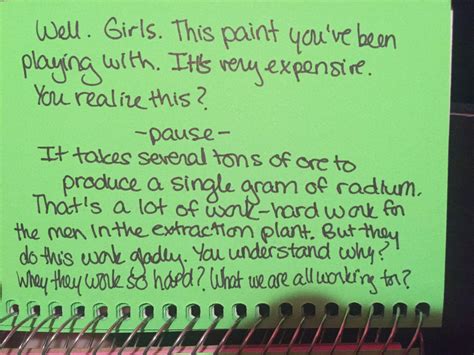 Well. Girls. This paint you've been
playing with. It's very expensive.
You realize this?
-pause-
It takes several tons of ore to
produce a single gram of radium.
That's a lot of work-hard work for
the men in the extraction plant. But they
do this work gladly. You understand why?
Whey they work so hard? What we are all working for?